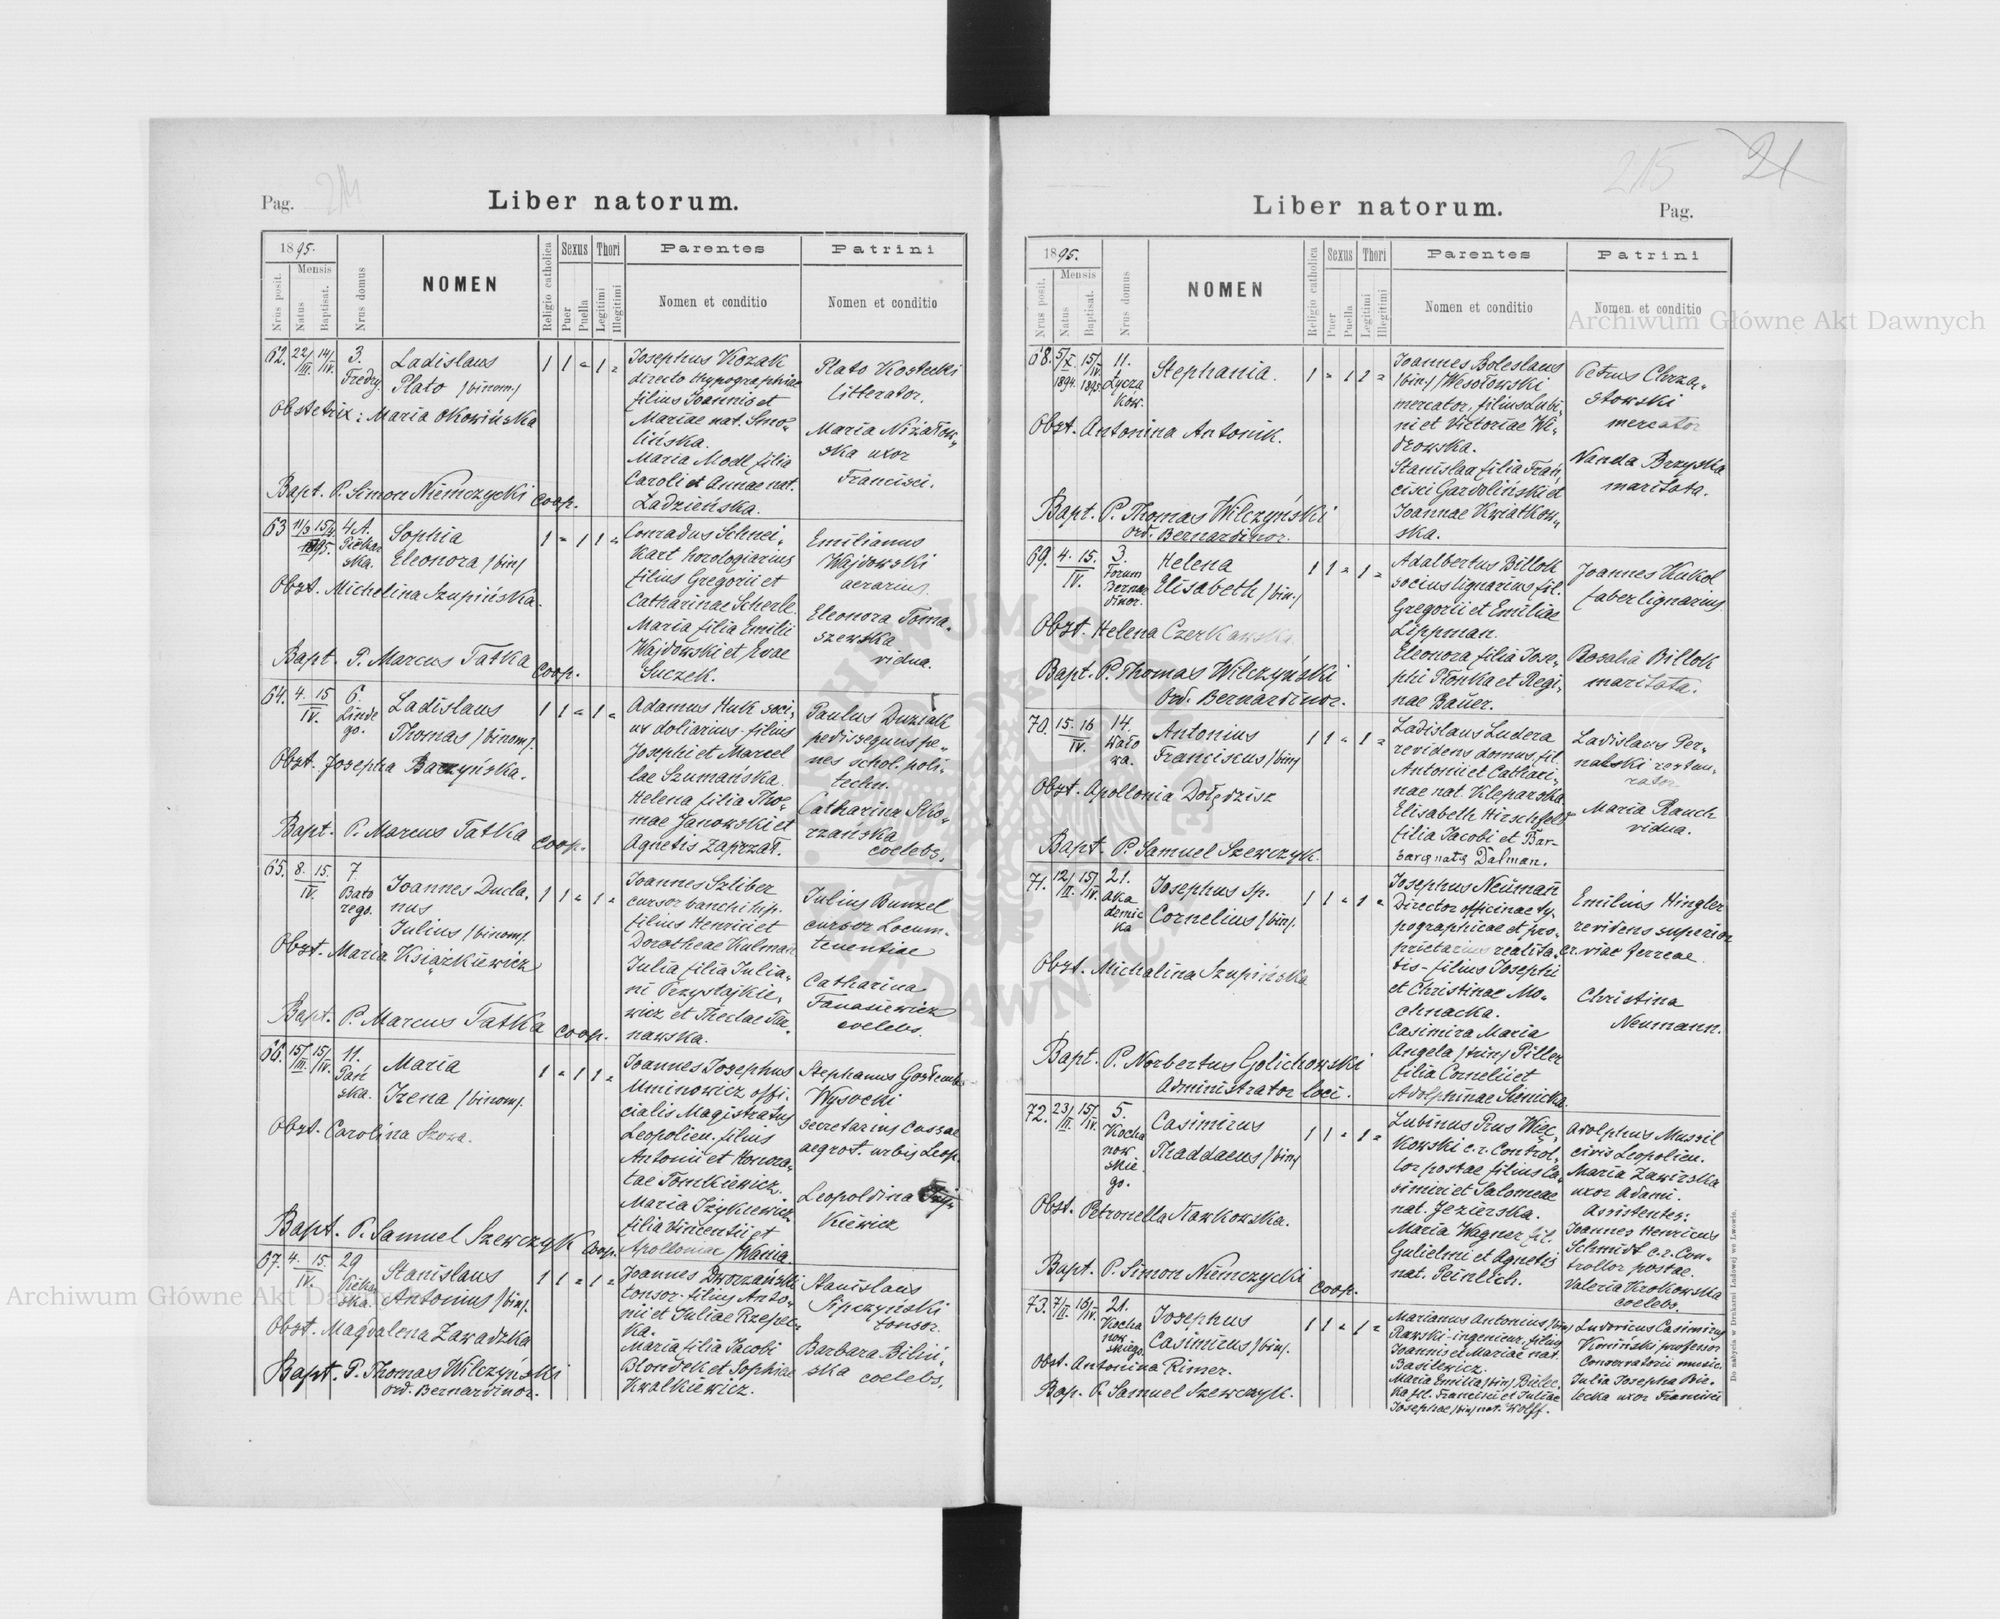 Pag. 214
Liber natorum.
1895.
Nrus posit.
Mensis
Natus
Baptisat.
Nrus domus
NOMEN
Religio catholica
Sexus
Puer
Puella
Thori
Legitimi
Illegitimi
Parentes
Nomen et conditio
Patrini
Nomen et conditio
62. 22/III. 14/IV. 3. Fredry.
Ladislaus
Plato /binom/
Obstetrix: Maria Okowińska
Bapt. P. Simon Niemczycki coop.
1 1 = 1 =
Josephus Kozak
directo thypographiae
filius Joannis et
Mariae nat. Smo-
lińska.
Maria Modl filia
Caroli et Annae nat.
Ladzieńska.
Plato Kostecki
litterator.
Maria Niżałow-
ska uxor
Francisci.
63 11/3 15/IV 1895. 4A. Piekar
ska.
Sophia
Eleonora /bin/
Obst. Michelina Szupińska.
Bapt. P. Marcus Tatka coop.
1 = 1 1 =
Conradus Schnei-
kart horologiarius
filius Gregorii et
Catharinae Scherle.
Maria filia Emilii
Wajdowski et Evae
Suczek.
Emilianus
Wajdowski
aerarius.
Eleonora Toma-
szewska
vidua.
64. 4. 15 IV. 6. Linde
go.
Ladislaus
Thomas /binom/.
Obst. Josepha Barzyńska.
Bapt. P. Marcus Tatka coop.
1 1 = 1 =
Adamus Huk soci-
us doliarius - filius
Josephi et Marcel
lae Szumańska.
Helena filia Tho-
mae Janowski et
Agnetis Zaprzał.
Paulus Duziak
pedissequus pe-
nes schol. poli-
techn.
Catharina Sko-
rzańska
coelebs.
65. 8. 15. IV. 7 Bato
rego.
Joannes Ducla-
nus
Julius /binom/.
Obst. Maria Książkiewicz
Bapt. P. Marcus Tatka coop.
1 1 = 1 =
Joannes Szliber
cursor banchi hip.
filius Henrici et
Dorotheae Kulman
Julia filia Julia-
ni Przystajkie-
wicz et Theclae Tar-
nawska.
Julius Bunzel
cursor Locum-
tenentiae
Catharina
Tanasiewicz
coelebs.
66. 15/III. 15/IV. 11. Pań
ska.
Maria
Irena /binom/.
Obst. Carolina
Bapt. P. Samuel Szewczyk coop.
1 = 1 1 =
Joannes Josephus
Uminowicz offi-
cialis Magistratus
Leopolien. filius
Antonii et Honora-
tae Tomkiewicz.
Maria Iżykiewicz
filia Vincentii et
Apolloniae /Wania.
Stephanus
Wysocki
secretarius Cassae
aegrot. urbis Leop.
Leopoldina
kiewicz
67. 4. 15. IV. 29 Piekar
ska.
Stanislaus
Antonius /bin/.
Obst. Magdalena Zawadzka
Bapt. P. Thomas Wilczyński
ord. Bernardinor.
1 1 = 1 =
Joannes Dworzański
tonsor - filius Anto-
nii et Juliae Rzepec-
ka.
Maria filia Jacobi
Blondek et Sophiae
Kwalkiewicz.
Stanislaus
Sipczyński
tonsor.
Barbara Biliń-
ska coelebs.
215 21
Liber natorum.
Pag.
1895.
Nrus posit.
Mensis
Natus
Baptisat.
Nrus domus
NOMEN
Religio catholica
Sexus
Puer
Puella
Thori
Legitimi
Illegitimi
Parentes
Nomen et conditio
Patrini
Nomen et conditio
68. 5/X. 1894. 15/IV. 1895 11. Łycza
kow.
Stephania.
Obst. Antonina Antonik.
Bapt. P. Thomas Wilczyński
ord. Bernardinor.
1 = 1 1 =
Joannes Boleslaus
/bin/ Wesołowski
mercator, filius Lubi-
ni et Victoriae Wi-
drowska.
Stanislaa filia Fran-
cisci Gardoliński et
Joannae Kwiatkow-
ska.
Petrus Chrza-
stowski
mercator
Vanda Brzyska
maritata.
69. 4. 15. IV. 3. Forum
Bernar
dinor.
Helena
Elisabeth /bin/
Obst. Helena Czerkawska.
Bapt. P. Thomas Wilczyński
Ord. Bernardinor.
1 1 = 1 =
Adalbertus Billok
socius lignarius fil.
Gregorii et Emiliae
Lippman.
Eleonora filia Jose-
phi Płonka et Regi-
nae Baüer.
Joannes Kukol
faber lignarius
Rosalia Billok
maritata.
70. 15. 16 IV. 14. Wało
wa.
Antonius
Franciscus /bin/
Obst. Apollonia Dołędzisz
Bapt. P. Samuel Szewczyk.
1 1 = 1 =
Ladislaus Ludera
revidens domus, fil.
Antonii et Cathari-
nae nat. Kleparska
Elisabeth Hirschfeld
filia Jacobi et Bar-
barae natae Dalman.
Ladislaus Per-
natski restau-
rator
Maria Rauch
vidua.
71. 12/II. 15/IV. 21. Aka
demic
ka
Josephus Sp.
Cornelius /bin/.
Obst. Michalina Szupińska
Bapt. P. Norbertus Golichowski
Administrator loci.
1 1 = 1 =
Josephus Neümañ
Director officinae ty-
pographicae et pro-
prietarius realita-
tis - filius Josephi
et Christinae Mo-
chnacka.
Casimira Maria
Angela /trin/ Piller
filia Cornelii et
Adolphinae Sienicka.
Emilius Hingler
revidens superior
c.r. viae ferreae.
Christina
Neumann.
72. 23/III. 15/IV. 5. Kocha
now
skie
go.
Casimirus
Thaddaeus /bin/
Obst. Petronella Nawkowska.
Bapt. P. Simon Niemczycki coop.
1 1 = 1 =
Lubinus Prus Więc-
kowski c.r. Control-
lor postae filius Ca-
simiri et Salomeae
nat. Jezierska.
Maria Wagner fil.
Gulielmi et Agnetis
nat. Peinlich.
Adolphus Mussil
civis Leopolien.
Maria Zawirska
uxor Adami.
Assistentes:
Joannes Henricus
Schmidt c.r. Con-
trollor postae.
Valeria Krokowska
coelebs.
73. 7/II. 16/IV. 21. Kocha
now
skiego.
Josephus
Casimirus /bin/.
Obst. Antonina Rimer.
Bap. P. Samuel Szewczyk.
1 1 = 1 =
Marianus Antonius /bin/
Rawski - ingenieur, filius
Joannis et Mariae nat.
Basilewicz.
Maria Emilia /bin/ Bielec-
ka fil. Francisci et Juliae
Josephae /bin/ nat. Wolff.
Ludovicus Casimirus
professor
Conservatorii music.
Julia Josepha Bie-
lecka uxor Francisci
Do nabycia w Drukarni Ludowej we Lwowie.
Archiwum Główne Akt Dawnych
Archiwum Główne Akt Dawnych
ARCHIWUM GŁÓWNE AKT DAWNYCH